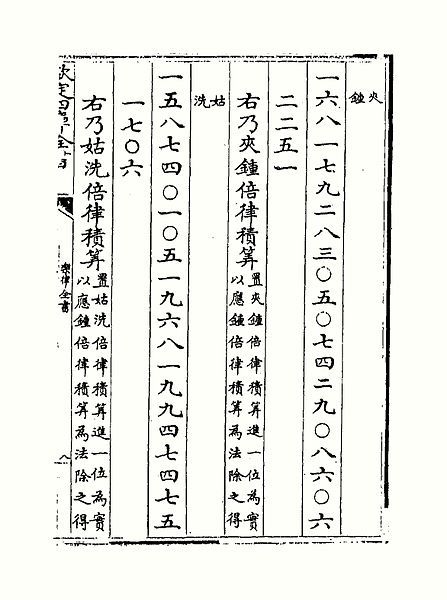 夾鍾
一六八一七九二八三〇五〇七四二九〇八六〇六
二二五一
右乃夾鍾倍律積筭
置夾鍾倍律積筭進一位為實
以應鍾倍律積筭為法除之得
姑洗
一五八七四〇一〇五一九六八一九九四七四七五
一七〇六
右乃姑洗倍律積筭
置姑洗倍律積筭進一位為實
以應鍾倍律積筭為法除之得
欽定四庫全書
樂律全書
八